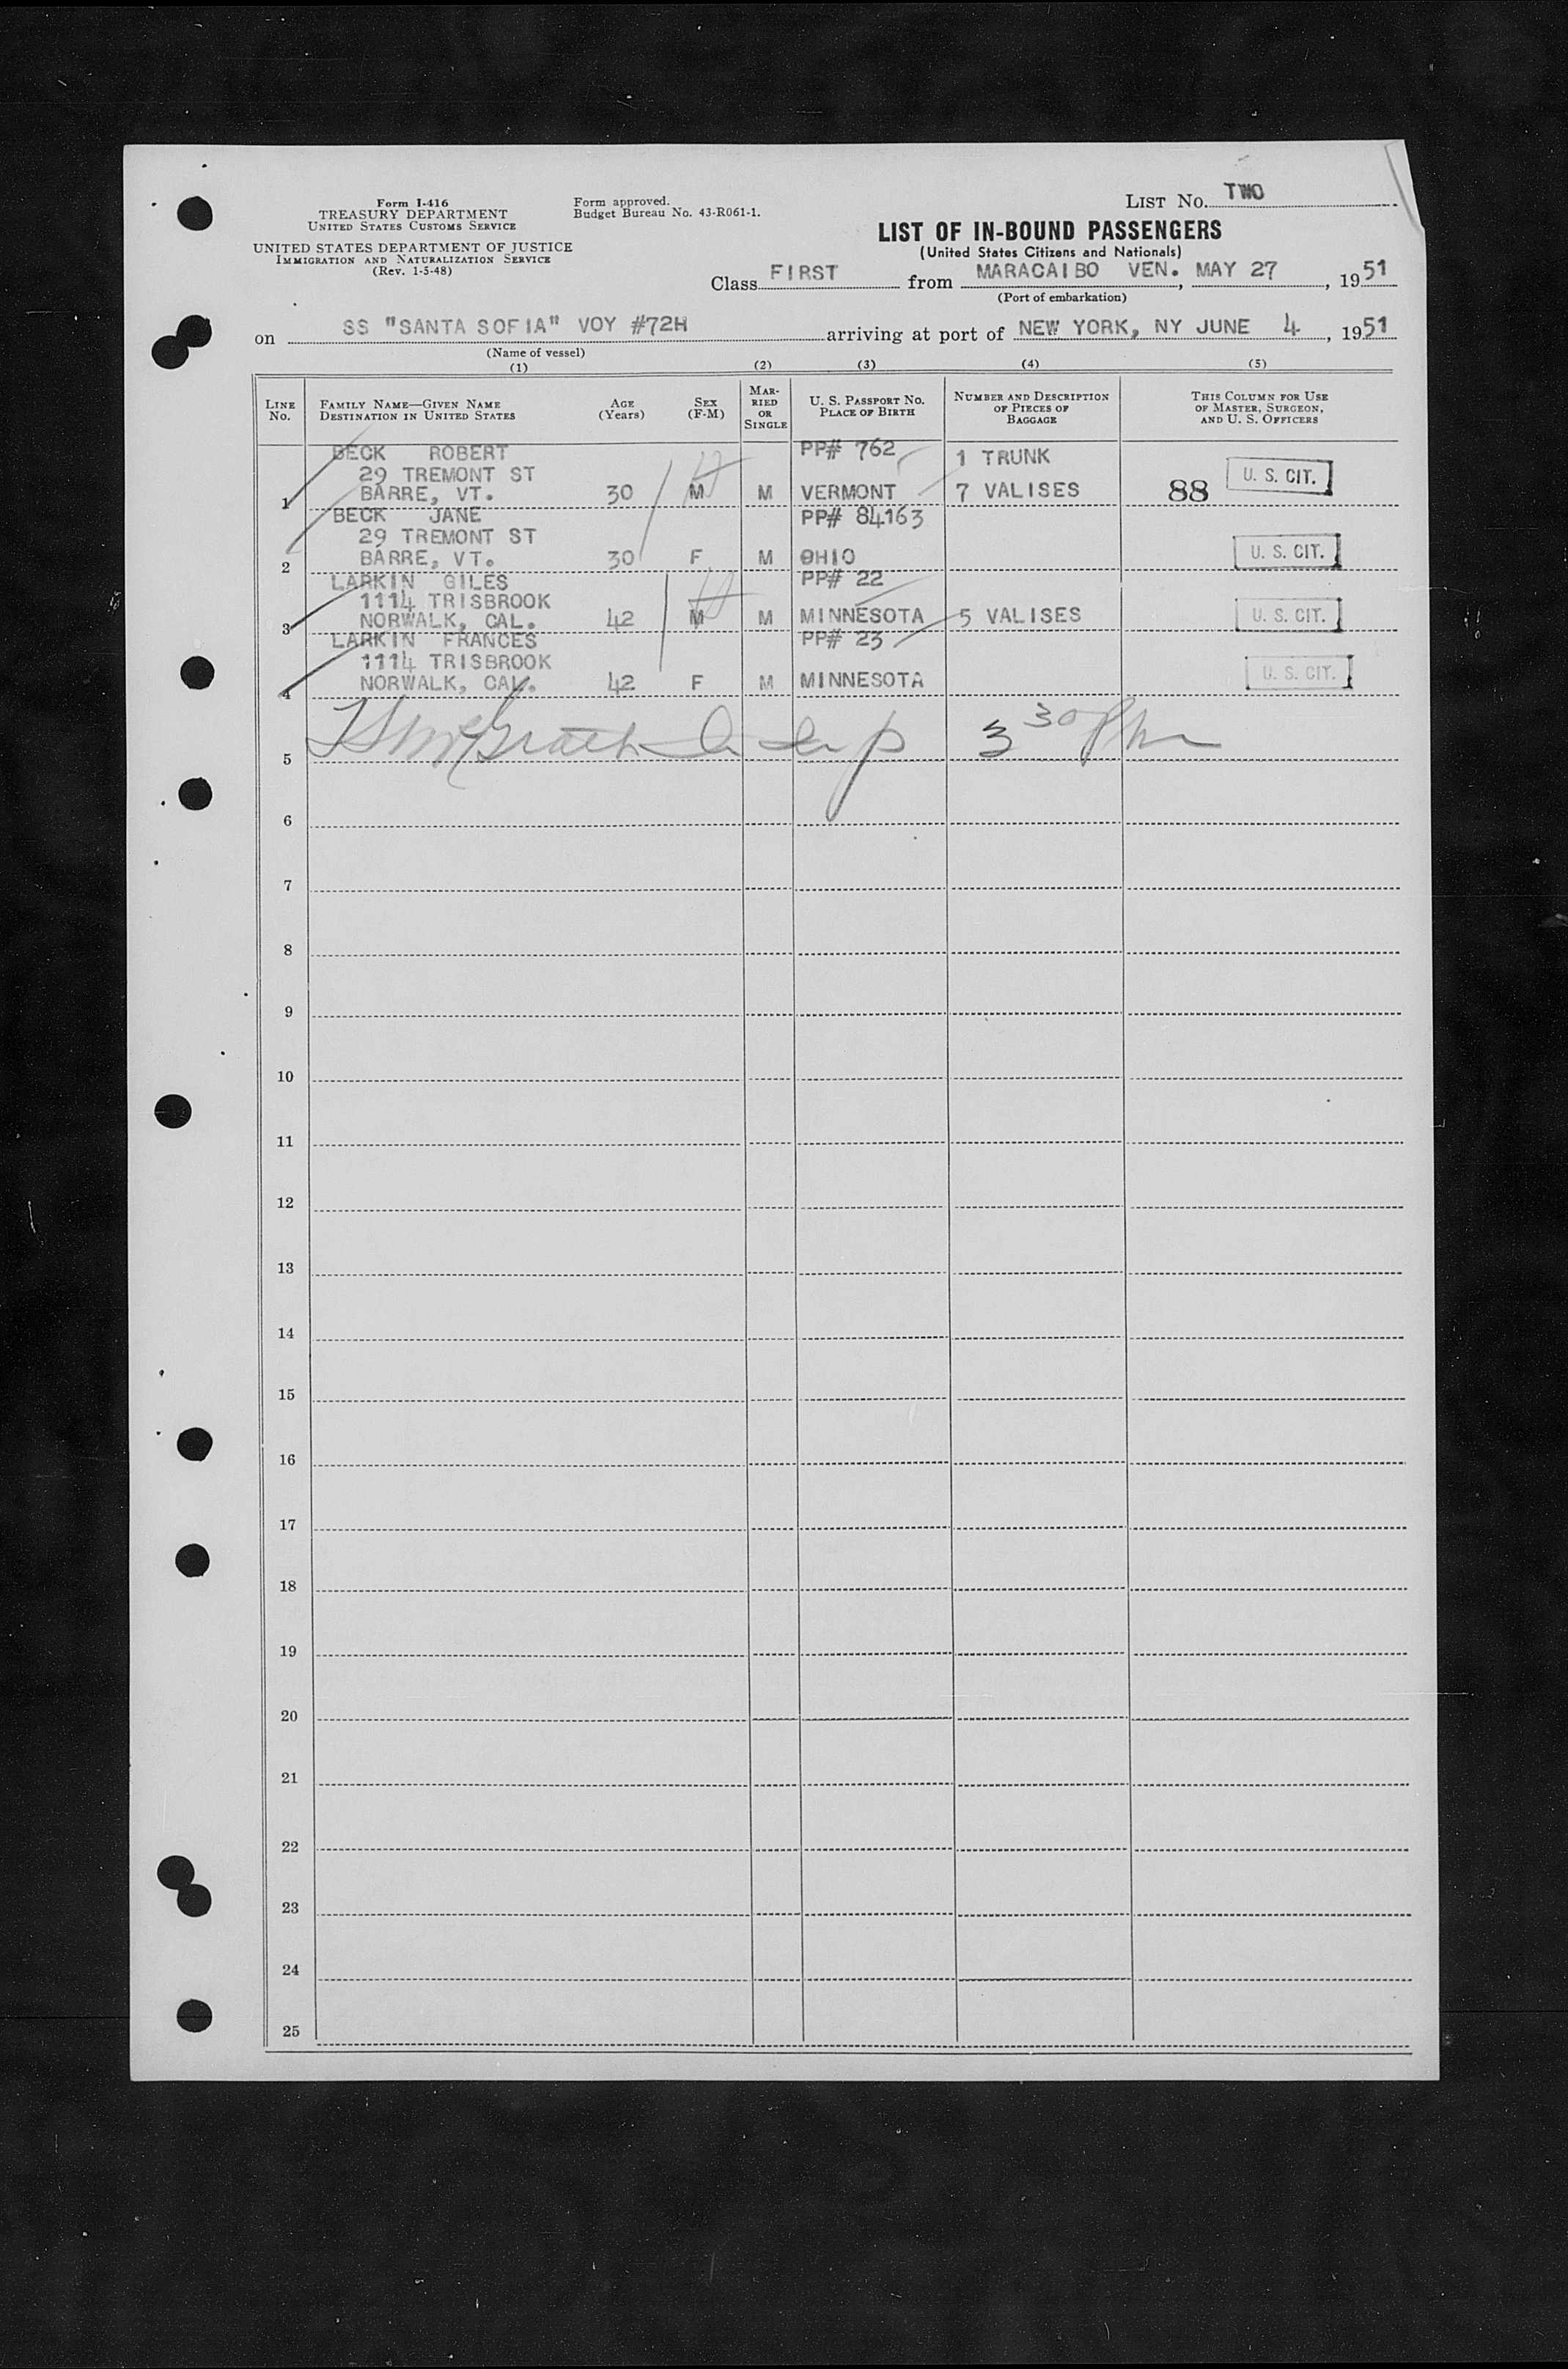 Form I-416
TREASURY DEPARTMENT
UNITED STATES CUSTOMS SERVICE
UNITED STATES DEPARTMENT OF JUSTICE
IMMIGRATION AND NATURALIZATION SERVICE
(Rev. 1-5-48)
Form approved.
Budget Bureau No. 43-R061-1.
LIST No. TWO
LIST OF IN-BOUND PASSENGERS
(United States Citizens and Nationals)
Class FIRST from MARACAIBO VEN., MAY 27, 1951
(Port of embarkation)
on SS "SANTA SOFIA" VOY #72H arriving at port of NEW YORK, NY JUNE 4, 1951
(Name of vessel)
(1) (2) (3) (4) (5)
LINE No.
FAMILY NAME—GIVEN NAME
DESTINATION IN UNITED STATES
AGE (Years)
SEX (F-M)
MARRIED OR SINGLE
U. S. PASSPORT No.
PLACE OF BIRTH
NUMBER AND DESCRIPTION OF PIECES OF BAGGAGE
THIS COLUMN FOR USE OF MASTER, SURGEON, AND U. S. OFFICERS
BECK ROBERT PP# 762 1 TRUNK
29 TREMONT ST U. S. CIT.
1 BARRE, VT. 30 M M VERMONT 7 VALISES 88
BECK JANE PP# 84163
29 TREMONT ST
2 BARRE, VT. 30 F M OHIO U. S. CIT.
LARKIN GILES PP# 22
1114 TRISBROOK
3 NORWALK, CAL. 42 M M MINNESOTA 5 VALISES U. S. CIT.
LARKIN FRANCES PP# 23
1114 TRISBROOK
4 NORWALK, CAL. 42 F M MINNESOTA U. S. CIT.
5 McGrath Insp 3 30 Pm
6
7
8
9
10
11
12
13
14
15
16
17
18
19
20
21
22
23
24
25